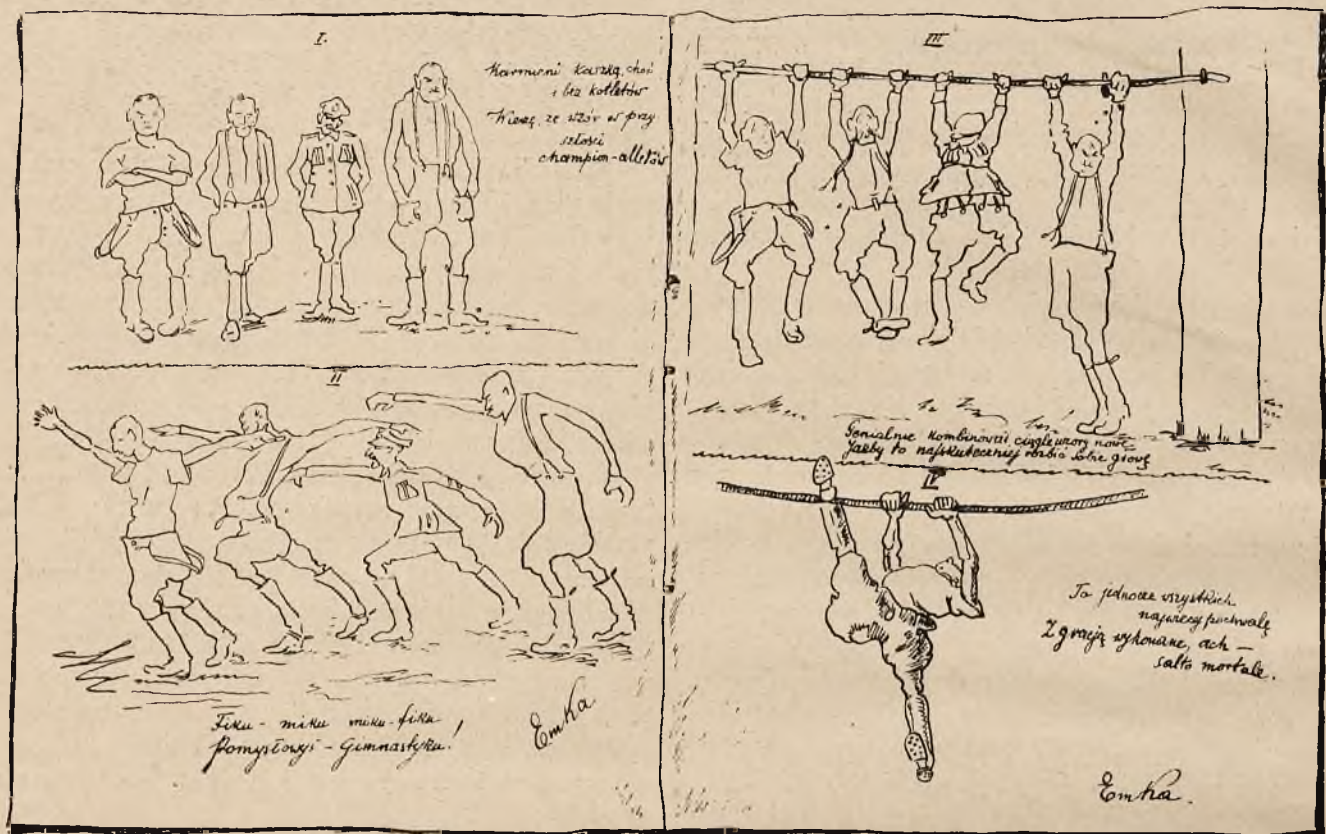 I.
Karmieni kaszką, choć
i bez kotletów
Wierzę, że wzór w przy
szłości
champion-atletów
II
Fiku - miku miku - fiku
Pomysłowyś - Gimnastyku!
Emka
III
Genialnie kombinować ciągle wzory nowe
jakby to najskuteczniej rozbić sobie głowę
IV
To jednocze wszystkich
najwięcej pochwalę
Z gracją wykonane, ach —
salto mortale.
Emka.